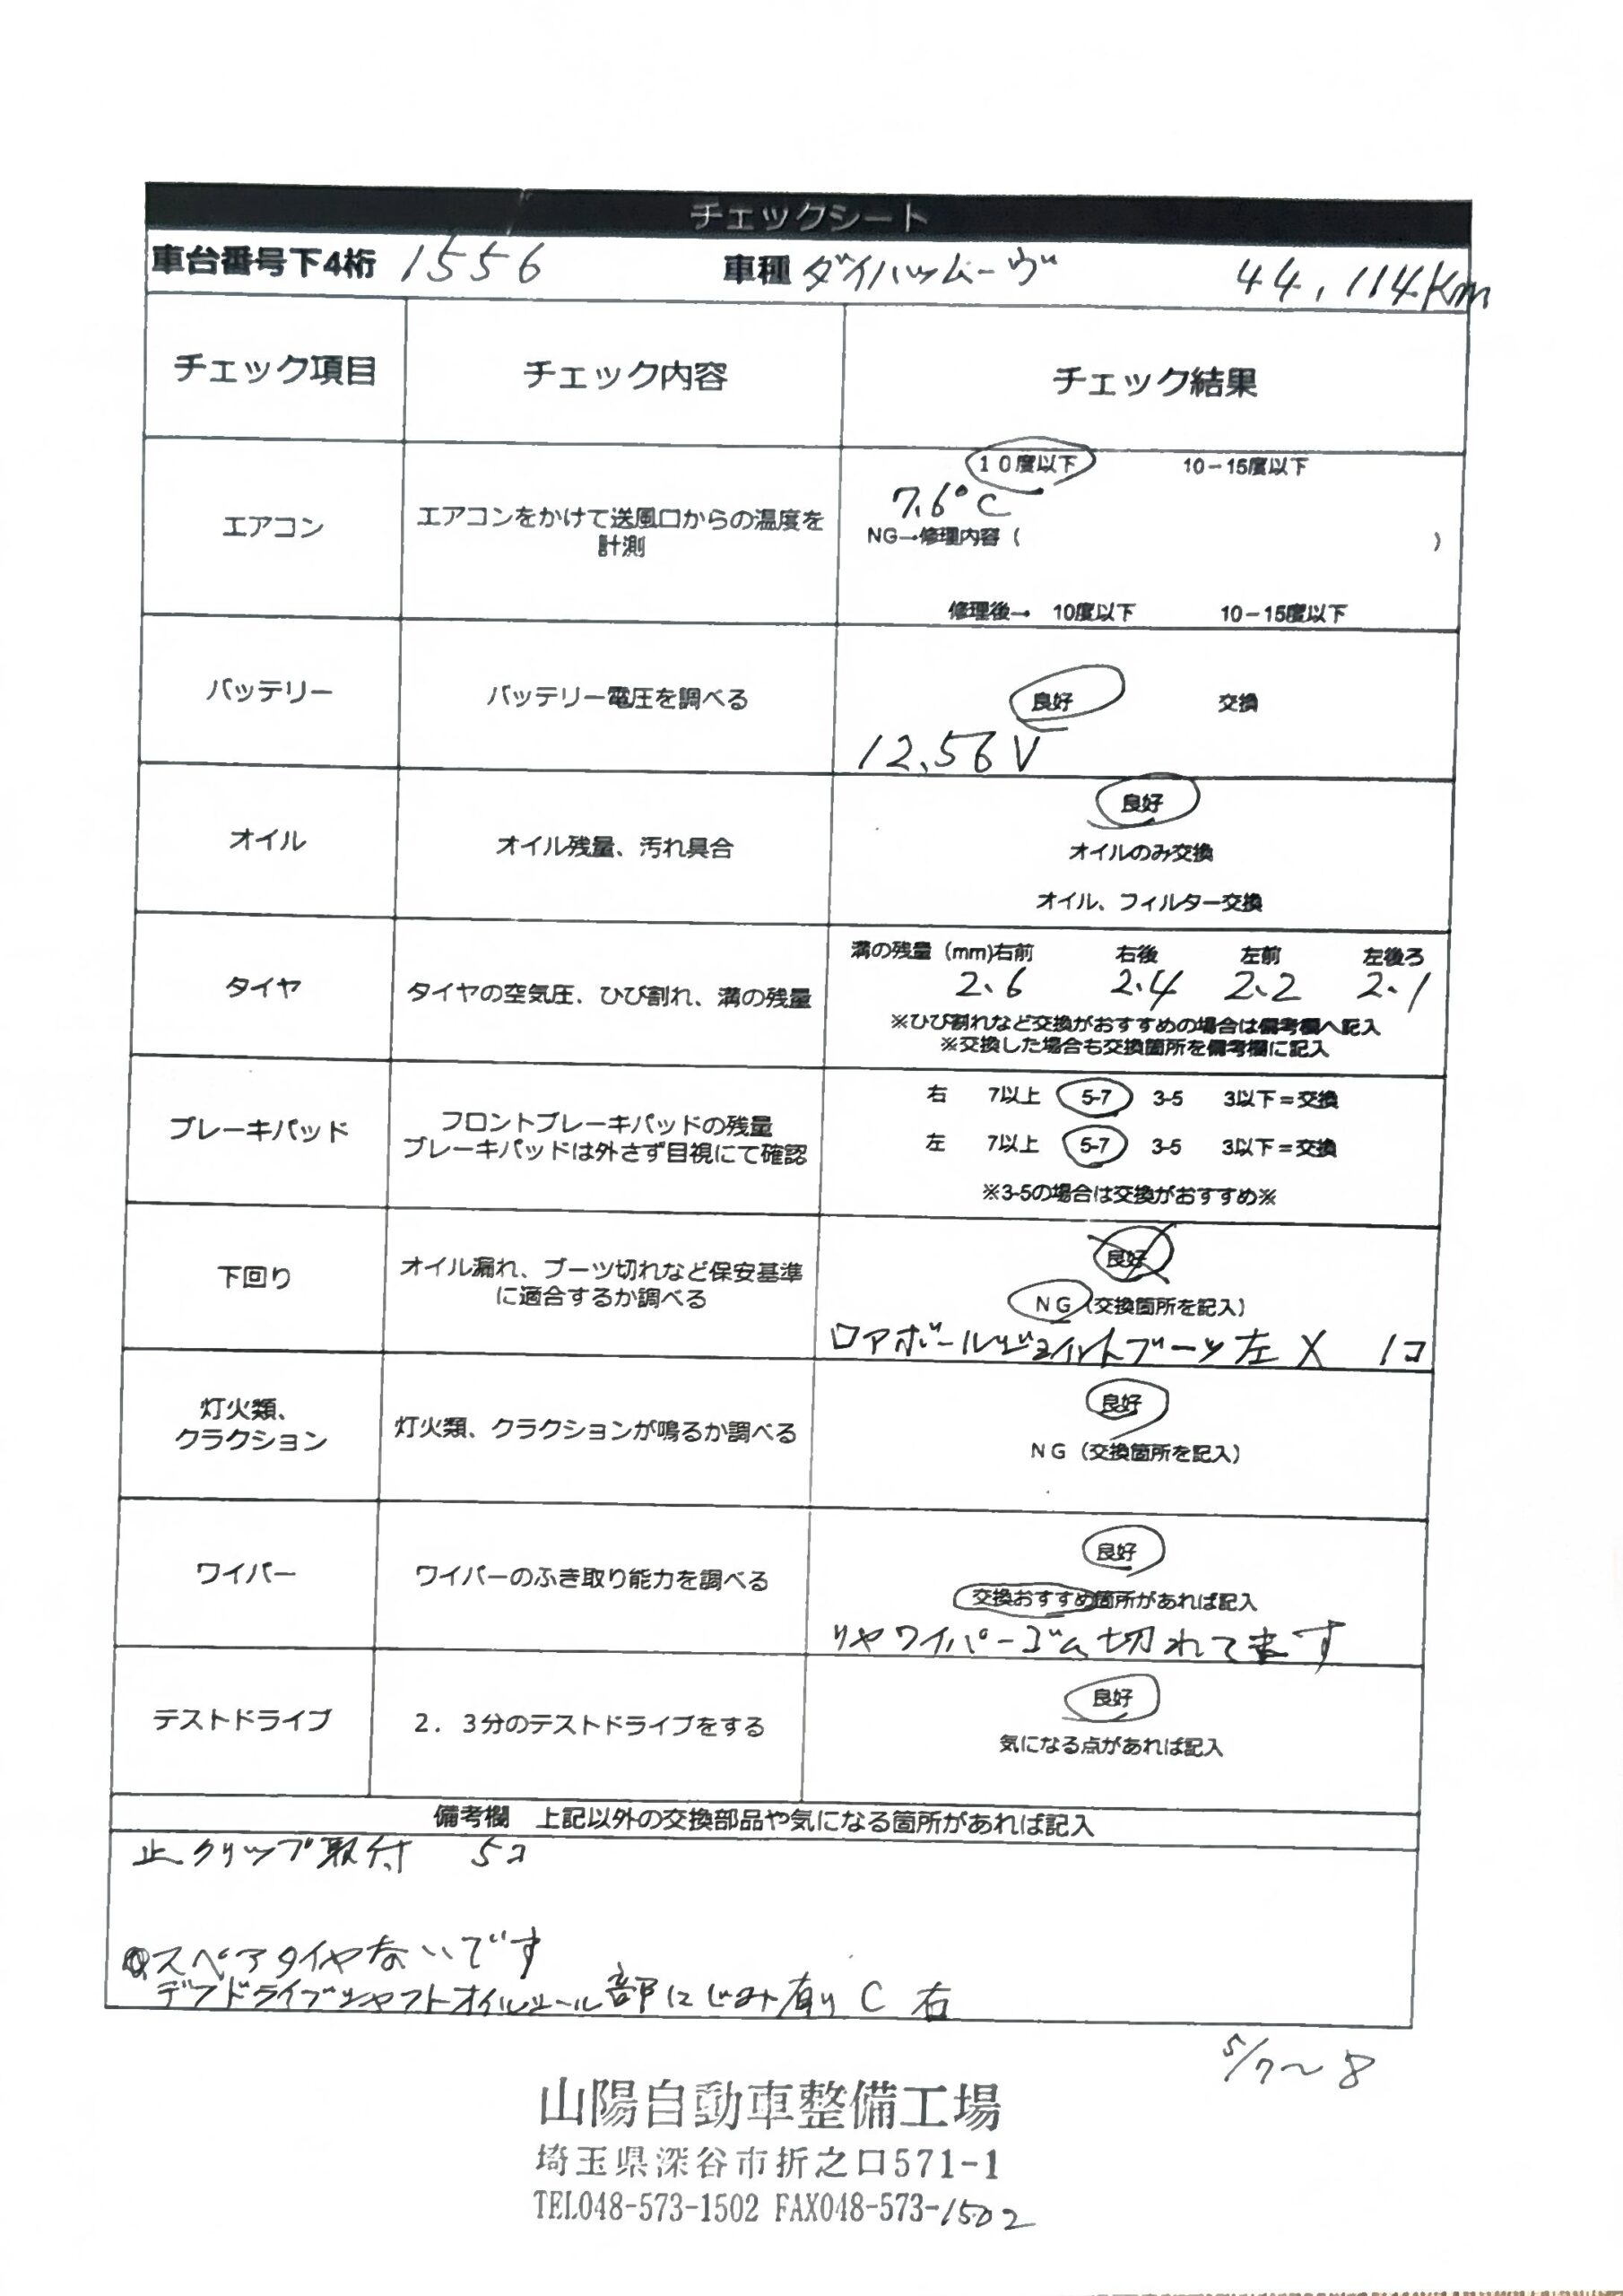 チェックシート
車台番号下4桁 1556 車種 ダイハツムーヴ 44,114Km
チェック項目 チェック内容 チェック結果
エアコン
エアコンをかけて送風口からの温度を
計測
10度以下 10-15度以下
7.6°C
NG→修理内容( )
修理後→ 10度以下 10-15度以下
バッテリー
バッテリー電圧を調べる
良好 交換
12.56V
オイル
オイル残量、汚れ具合
良好
オイルのみ交換
オイル、フィルター交換
タイヤ
タイヤの空気圧、ひび割れ、溝の残量
溝の残量 (mm)右前 右後 左前 左後ろ
2.6 2.4 2.2 2.1
※ひび割れなど交換がおすすめの場合は備考欄へ記入
※交換した場合も交換箇所を備考欄に記入
ブレーキパッド
フロントブレーキパッドの残量
ブレーキパッドは外さず目視にて確認
右 7以上 5-7 3-5 3以下=交換
左 7以上 5-7 3-5 3以下=交換
※3-5の場合は交換がおすすめ※
下回り
オイル漏れ、ブーツ切れなど保安基準
に適合するか調べる
良好
NG(交換箇所を記入)
ロアボールジョイントブーツ左 X 1コ
灯火類、
クラクション
灯火類、クラクションが鳴るか調べる
良好
NG(交換箇所を記入)
ワイパー
ワイパーのふき取り能力を調べる
良好
交換おすすめ箇所があれば記入
リヤワイパーゴム切れてます
テストドライブ
2.3分のテストドライブをする
良好
気になる点があれば記入
備考欄 上記以外の交換部品や気になる箇所があれば記入
止クリップ取付 5コ
スペアタイヤないです
デフドライブシャフトオイルシール部にじみ有り C 右
5/7~8
山陽自動車整備工場
埼玉県深谷市折之口571-1
TEL048-573-1502 FAX048-573-1502